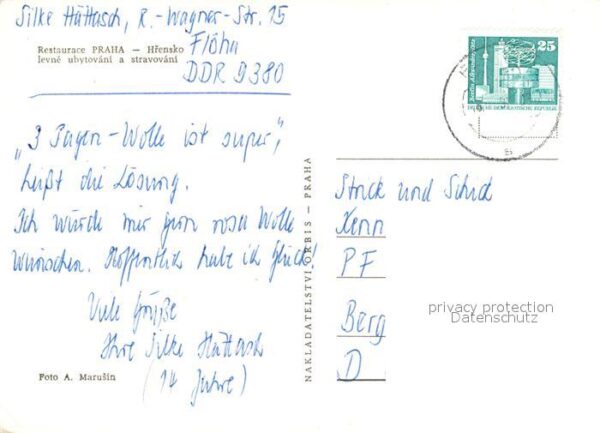 Silke Hüttasch, R.-Wagner-Str. 15
Flöha
DDR 9380
Restaurace PRAHA — Hřensko
levné ubytování a stravování
„3 Pagen-Wolle ist super",
heißt die Lösung.
Ich würde mir gern rosa Wolle
wünschen. Hoffentlich habe ich Glück!
Viele Grüße
Ihre Silke Hüttasch
(14 Jahre)
Foto A. Marušin
NAKLADATELSTVÍ ORBIS — PRAHA
25
Berlin Alexanderplatz
DEUTSCHE DEMOKRATISCHE REPUBLIK
Strick und Schick
Kenn
PF
Berg
D
privacy protection
Datenschutz